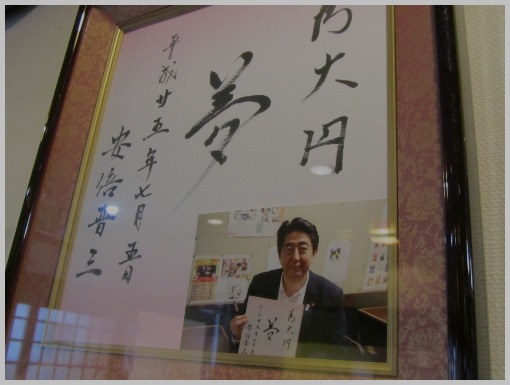 大円
夢
平成廿五年七月五日
安倍晋三
大円
夢